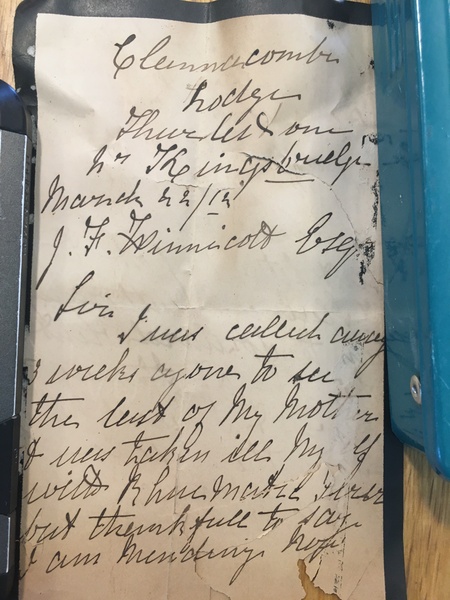 Clannacombe
Lodge
Thurlestone
nr Kingsbridge
March 22/12
J. F. Winnicott Esq
Sir
I was called away
3 weeks agone to see
the last of My Mother
I was taken ill My Self
with Rhuematic fever
but thankfull to say
I am Mending